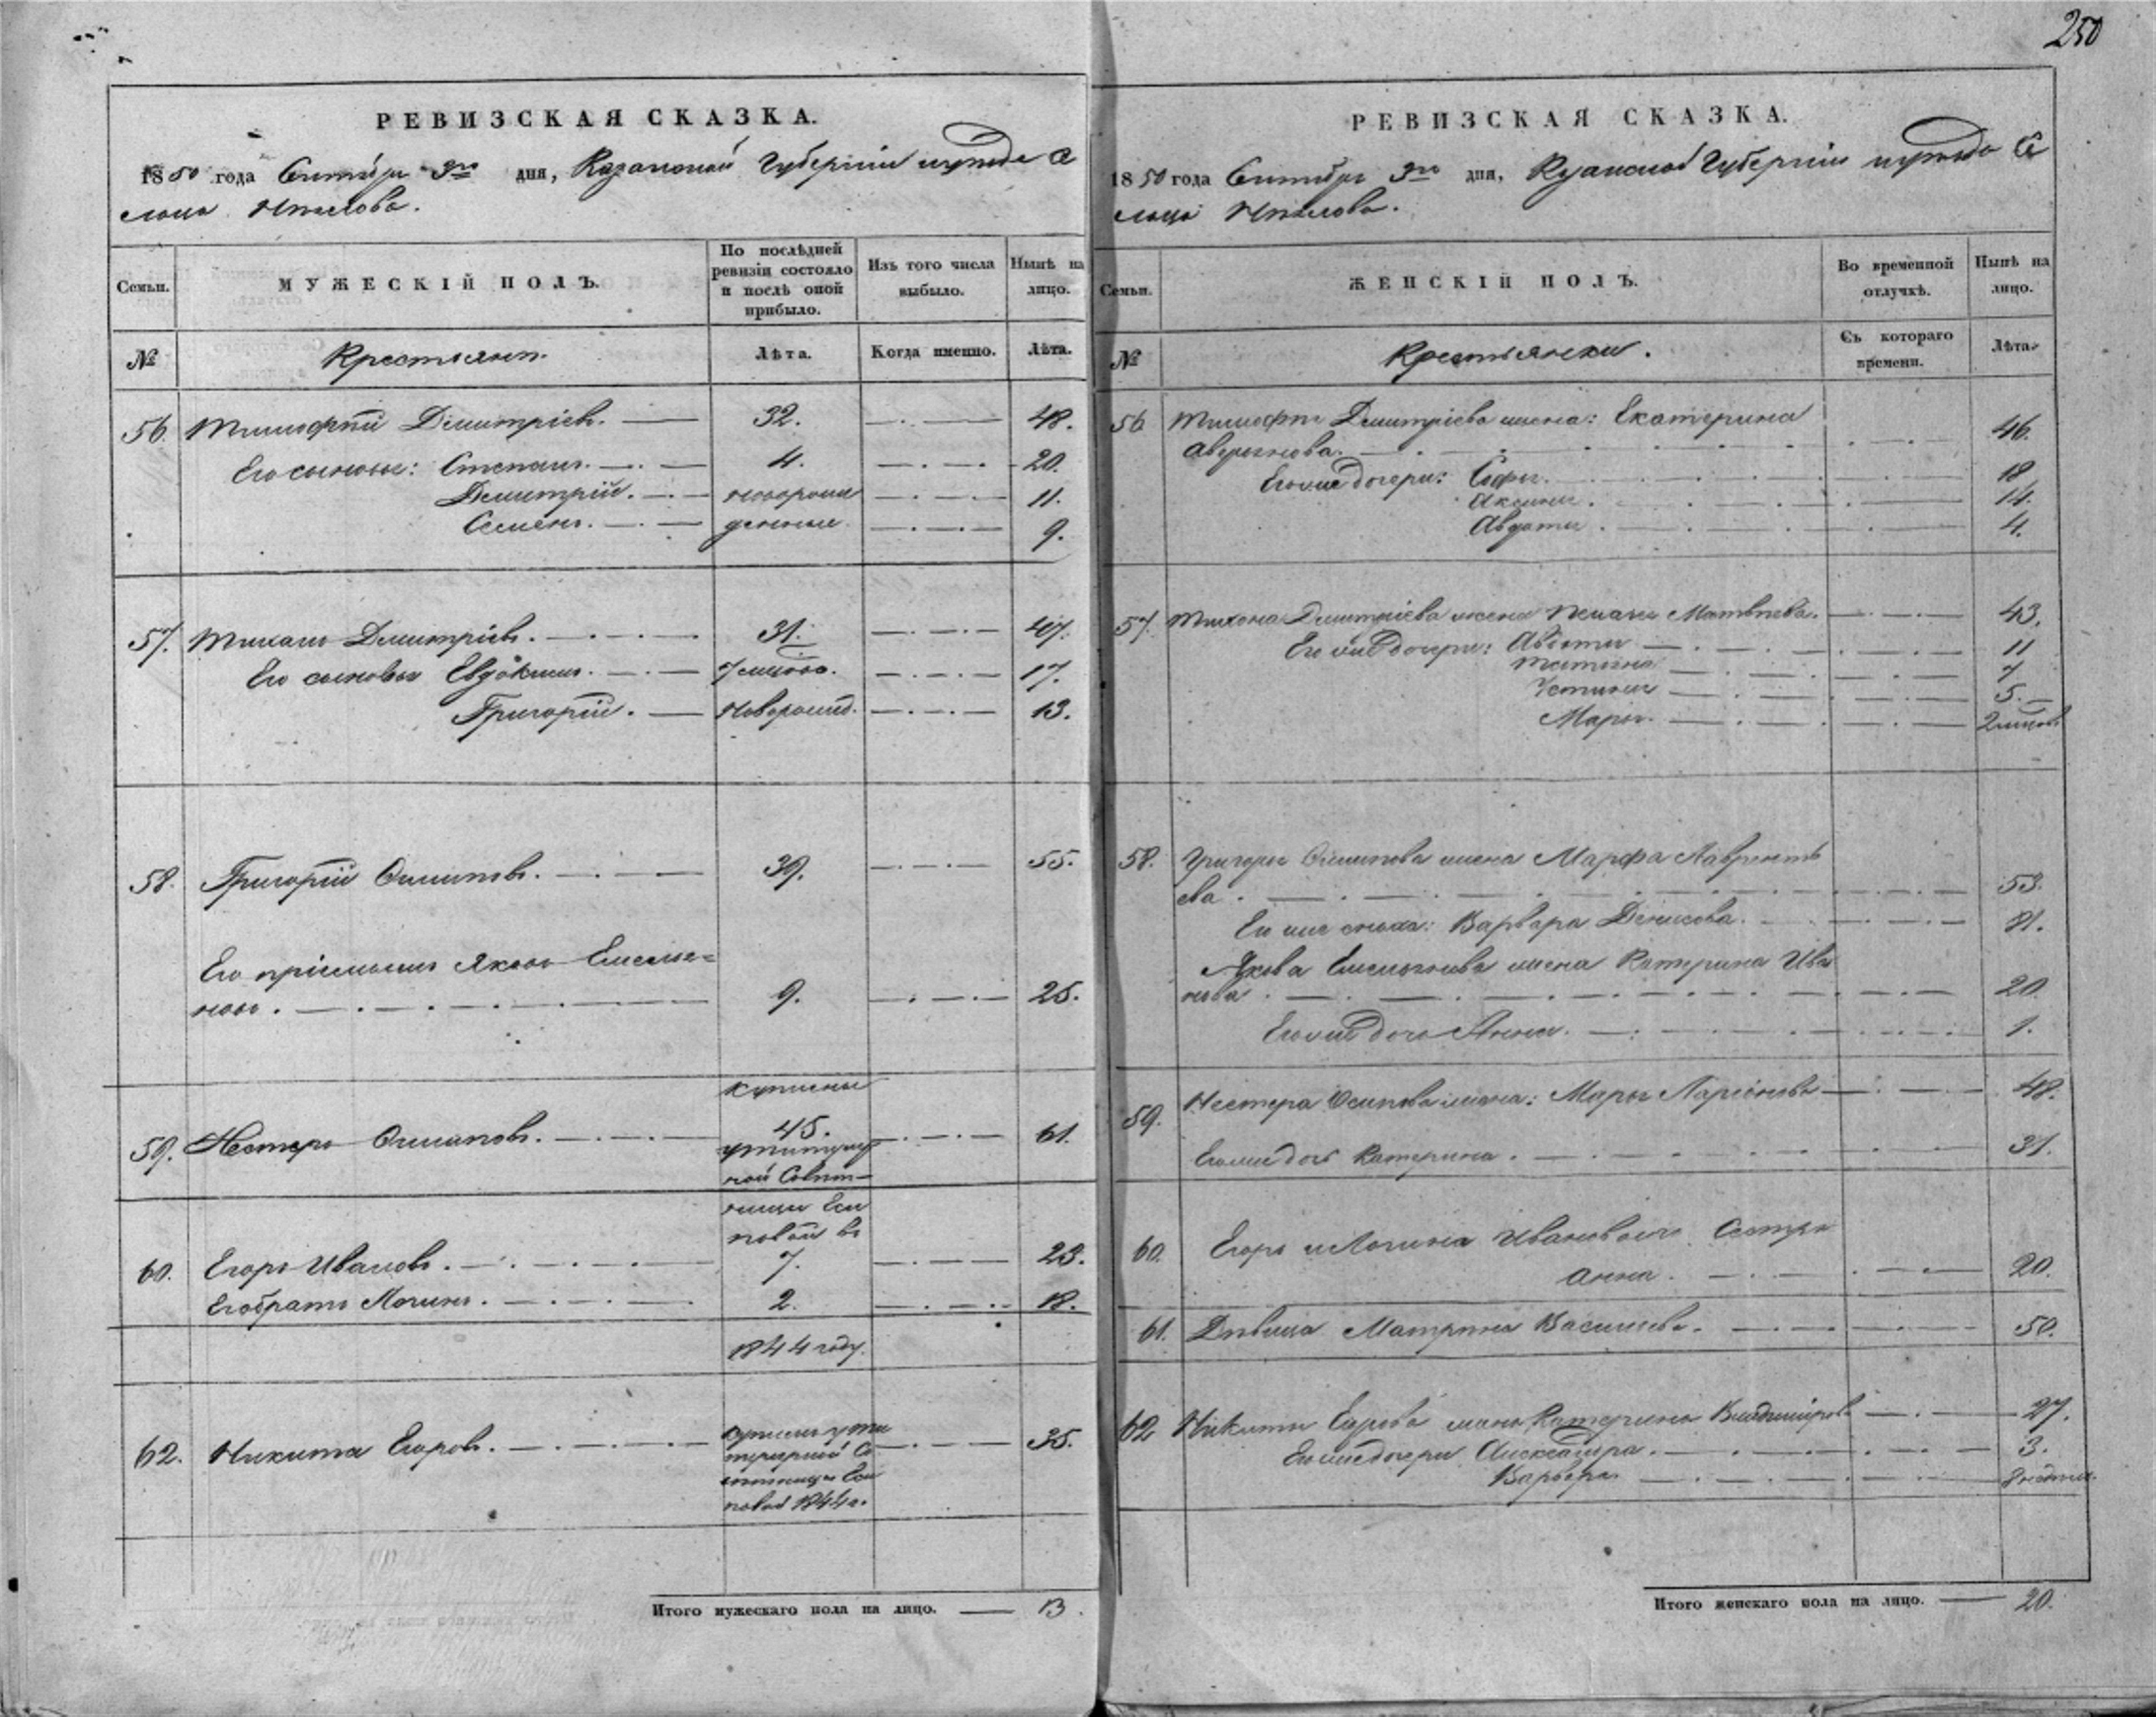 250
РЕВИЗСКАЯ СКАЗКА.
1850 года Сентября 3го дня, Казанской Губерніи
сельца
Семьи.
МУЖЕСКІЙ ПОЛЪ.
По послѣдней ревизіи состояло и послѣ оной прибыло.
Изъ того числа выбыло.
Нынѣ на лицо.
№
Крестьяне.
Лѣта.
Когда именно.
Лѣта.
56. Тимофѣй Дмитріевъ. 32. 48.
Его сыновья: Степанъ. 4. 20.
Дмитрій. новорож 11.
Семенъ. денные 9.
57. Тихонъ Дмитріевъ. 31. 47.
Его сыновья Евдокимъ. 17.
Григорій. Новорожд. 13.
58. Григорій Осиповъ. 39. 55.
Его пріемышъ Яковъ Емелья=
новъ. 9. 25.
куплены
59. Нестеръ Осиповъ. 45. 61.
у титуляр
ной Совѣт
ницы Еси
повой въ
60. Егоръ Ивановъ. 7. 23.
Его братъ Логинъ. 2. 18.
1844 году.
62. Никита Егоровъ. 35.
купленъ у ти
тулярной Со
вѣтницы Еси
повой 1844 г.
Итого мужескаго пола на лицо. 13.
РЕВИЗСКАЯ СКАЗКА.
1850 года Сентября 3го дня, Губерніи
сельца
Семьи.
ЖЕНСКІЙ ПОЛЪ.
Во временной отлучкѣ.
Нынѣ на лицо.
№
Крестьянки.
Съ котораго времени.
Лѣта.
56 Тимофея Дмитріева жена: Екатерина
Аверьянова. 46.
Его же дочери: Софья. 18
Аксинья. 14.
Авдотья. 4.
57. Тихона Дмитріева жена Матвѣева. 43.
Его же дочери: Авдотья 11
Татьяна 7
Устинья 5.
Марья. 2 мѣсяц
58. Григорья Осипова жена Марфа Лаврентье
ва. 53.
Ея же сноха: Варвара Денисова.
Якова Емельянова жена Катерина Ива
нова. 20.
Его же дочь Анна. 1.
59. Нестера Осипова жена: Марья Ларіонова 48.
Его же дочь Катерина. 31.
60. Егора и Логина Ивановыхъ Сестра
Анна. 20.
61. Дѣвица Матрена Васильева. 50.
62 Никиты Егорова жена Катерина Владимірова 27.
Его же дочери Александра. 3.
Варвара
Итого женскаго пола на лицо. 20.